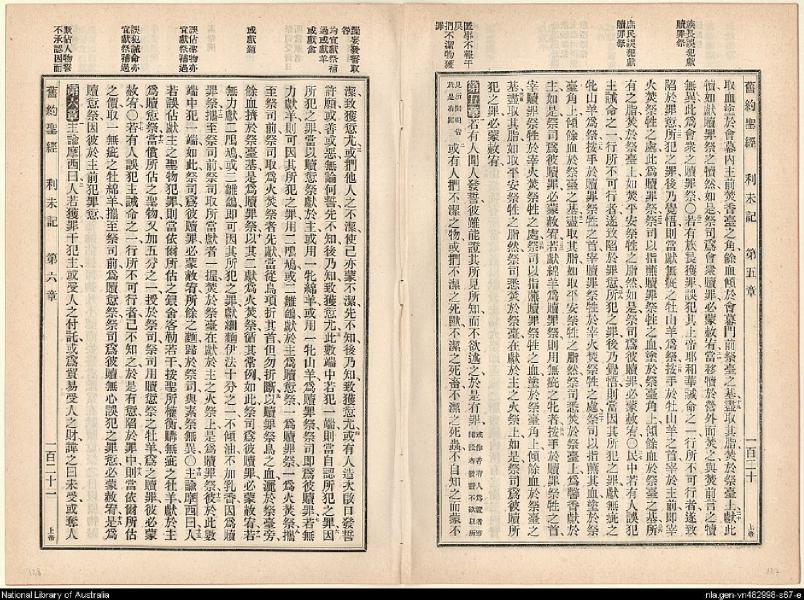 族長誤犯獻
贖罪祭
庶民誤犯獻
贖罪祭
舊約聖經 利未記 第五章 一百二十 上卷
取血塗於會幕內主前焚香臺之角餘血傾於會幕門前祭臺之基盡取其脂焚於祭臺上獻此
犢如獻贖罪祭之犢然如是祭司爲會衆贖罪必蒙赦宥當移犢於營外而焚之與焚前言之犢
無異此爲會衆之贖罪祭○若有族長獲罪誤犯其上帝耶和華誡命之一行所不可行者遂致
陷於罪愆所犯之罪後乃覺悟則當獻無疵之牡山羊爲祭按手於牡山羊之首宰於主前即宰
火焚祭牲之處此爲贖罪祭祭司以指蘸贖罪祭牲之血塗於祭臺角上傾餘血於祭臺之基所
有之脂焚於祭臺上如焚平安祭牲之脂然如是祭司爲彼贖罪必蒙赦宥○庶民中若有人誤犯
主誡命之一行所不可行者遂致陷於罪愆所犯之罪後乃覺悟則當因其所犯之罪獻無疵之
牝山羊爲祭按手於贖罪祭牲之首宰贖罪祭牲於宰火焚祭牲之處祭司以指蘸其血塗於祭
臺角上傾餘血於祭臺之基盡取其脂如取平安祭牲之脂然祭司焚於祭臺上爲馨香獻於
主如是祭司爲彼贖罪必蒙赦宥若獻綿羊爲贖罪祭則用無疵之牝者按手於贖罪祭牲之首
宰贖罪祭牲於宰火焚祭牲之處祭司以指蘸贖罪祭牲之血塗於祭臺角上傾餘血於祭臺之
基盡取其脂如取平安祭牲之脂然祭司焚於祭臺在獻於主之火祭上如是祭司爲彼贖所
犯之罪必蒙赦宥
第五章 若有人聞人發誓彼雖能證其所見所知而不欲述之於是有罪
或有人捫不潔之物或捫不潔之死獸不潔之死畜不潔之死蟲不自知之而蒙不
潔致獲愆尤或捫他人之不潔使己亦蒙不潔先不知後乃知致獲愆尤或有人造次啟口發誓
許願或善或惡無論何誓先不知後乃知致獲愆尤此數端中若犯一端則當自認所犯之罪因
所犯之罪當以贖愆祭獻於主或用一牝綿羊或用一牝山羊爲贖罪祭祭司即爲彼贖罪若無
力獻羊則可因其所犯之罪用二鳲鳩或二雛鴿獻於主爲贖愆祭一爲贖罪祭一爲火焚祭攜
至祭司前祭司取爲火焚祭者先獻當從鳥項折其首但勿折斷以贖罪祭鳥之血灑於祭臺旁
餘血擠於祭臺基是爲贖罪祭以其二獻爲火焚祭循其常例如此祭司爲彼贖罪必蒙赦宥若
無力獻二鳲鳩或二雛鴿即可因其所犯之罪獻細麵伊法十分之一不傾油不加乳香因爲贖
罪祭攜至祭司前祭司取所當獻者一握焚於祭臺在獻於主之火祭上是爲贖罪祭彼於此數
端中犯一端如此祭司爲彼贖罪必蒙赦宥所餘之麵歸於祭司與素祭無異○主諭摩西曰人
若誤佔獻主之聖物犯罪則當依爾所估之銀舍客勒若干按聖所權衡購無疵之牡羊獻於主
爲贖愆祭當償所佔之聖物又加五分之一授於祭司祭司用贖愆祭之牡羊爲之贖罪彼必蒙
赦宥○若有人誤犯主誡命之一行所不可行者己不知之於是有愆陷於罪中則當依爾所估
之價取一無疵之牡綿羊攜至祭司前爲贖愆祭祭司爲彼贖無心誤犯之罪愆必蒙赦宥是爲
贖愆祭因彼於主前犯罪愆
第六章 主諭摩西曰人若獲罪干犯主或受人之付託或爲貿易受人之財諱之曰未受或奪人
舊約聖經 利未記 第六章 一百二十一 上卷
或獻鴿
誤佔聖物亦
宜獻祭補過
誤犯誡命亦
宜獻祭補過
欺佔人物誓
不承認因而
National Library of Australia
nla.gen-vn482998-s67-e